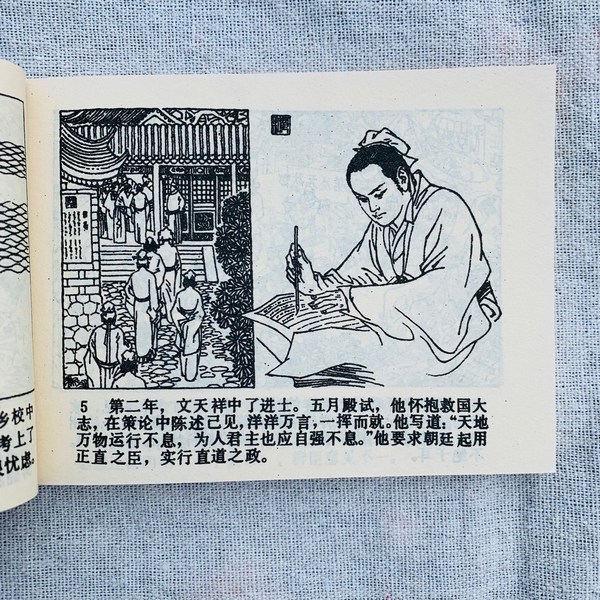 乡校中
考上了
忧虑。
5 第二年，文天祥中了进士。五月殿试，他怀抱救国大
志，在策论中陈述己见，洋洋万言，一挥而就。他写道：“天地
万物运行不息，为人君主也应自强不息。”他要求朝廷起用
正直之臣，实行直道之政。